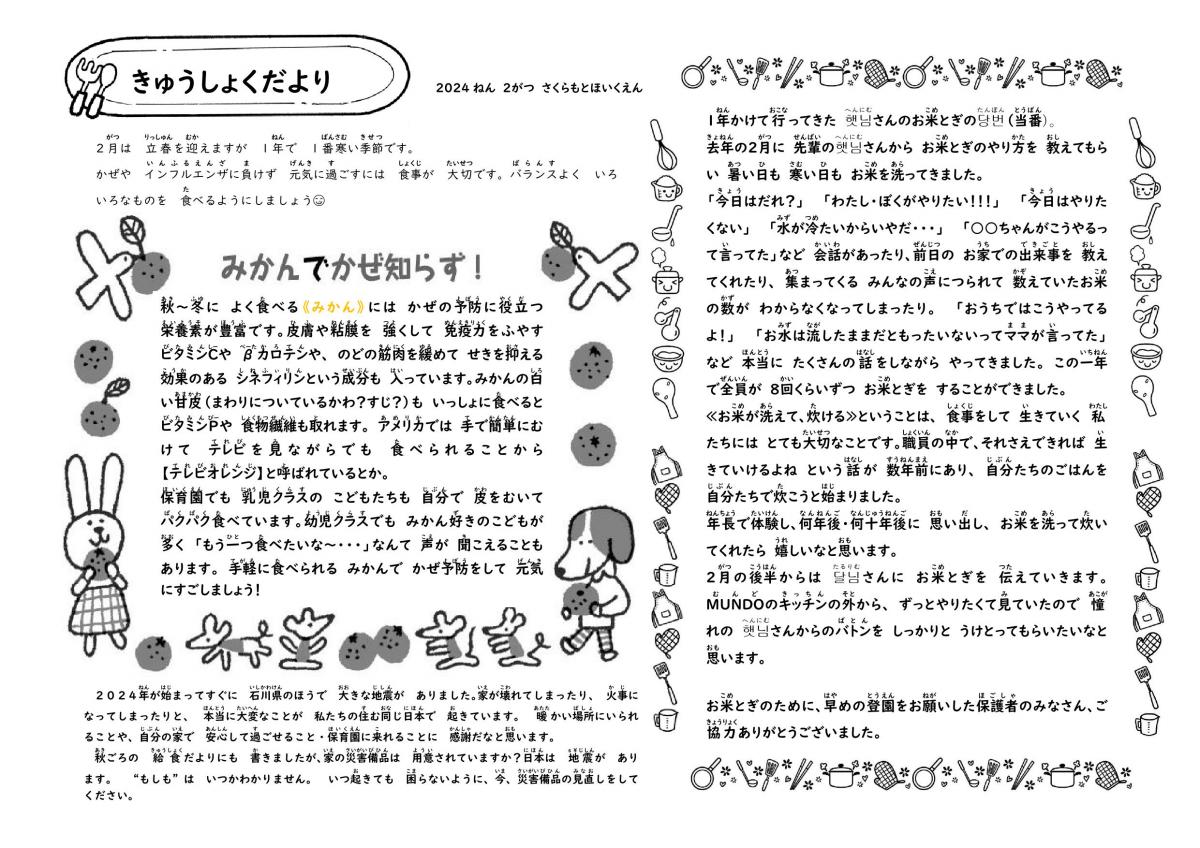 きゅうしょくだより
2024 ねん 2がつ さくらもとほいくえん
2月は 立春を迎えますが 1年で 1番寒い季節です。
かぜや インフルエンザに負けず 元気に過ごすには 食事が 大切です。バランスよく いろ
いろなものを 食べるようにしましょう☺
みかんでかぜ知らず！
秋～冬に よく食べる《みかん》には かぜの予防に役立つ
栄養素が豊富です。皮膚や粘膜を 強くして 免疫力をふやす
ビタミンCや βカロテンや、のどの筋肉を緩めて せきを抑える
効果のある シネフィリンという成分も 入っています。みかんの白
い甘皮（まわりについているかわ？すじ？）も いっしょに食べると
ビタミンPや 食物繊維も取れます。アメリカでは 手で簡単にむ
けて テレビを見ながらでも 食べられることから
【テレビオレンジ】と呼ばれているとか。
保育園でも 乳児クラスの こどもたちも 自分で 皮をむいて
パクパク食べています。幼児クラスでも みかん好きのこどもが
多く 「もう一つ食べたいな～・・・」なんて 声が 聞こえることも
あります。手軽に食べられる みかんで かぜ予防をして 元気
にすごしましょう！
2024年が始まってすぐに 石川県のほうで 大きな地震が ありました。家が壊れてしまったり、 火事に
なってしまったりと、 本当に大変なことが 私たちの住む同じ日本で 起きています。 暖かい場所にいられ
ることや、自分の家で 安心して過ごせること・保育園に来れることに 感謝だなと思います。
秋ごろの 給食だよりにも 書きましたが、家の災害備品は 用意されていますか？日本は 地震が あり
ます。 “もしも”は いつかわかりません。 いつ起きても 困らないように、今、災害備品の見直しをして
ください。
1年かけて行ってきた 햇님さんのお米とぎの당번（当番）。
去年の2月に 先輩の햇님さんから お米とぎのやり方を 教えてもら
い 暑い日も 寒い日も お米を洗ってきました。
「今日はだれ？」 「わたし・ぼくがやりたい！！！」 「今日はやりた
くない」 「水が冷たいからいやだ・・・」 「〇〇ちゃんがこうやるっ
て言ってた」など 会話があったり、前日の お家での出来事を 教え
てくれたり、 集まってくる みんなの声につられて 数えていたお米
の数が わからなくなってしまったり。 「おうちではこうやってる
よ！」 「お水は流したままだともったいないってママが言ってた」
など 本当に たくさんの話をしながら やってきました。この一年
で全員が 8回くらいずつ お米とぎを することができました。
≪お米が洗えて、炊ける≫ということは、食事をして 生きていく 私
たちには とても大切なことです。職員の中で、それさえできれば 生
きていけるよね という話が 数年前にあり、 自分たちのごはんを
自分たちで炊こうと始まりました。
年長で体験し、何年後・何十年後に 思い出し、 お米を洗って炊い
てくれたら 嬉しいなと思います。
2月の後半からは 달님さんに お米とぎを 伝えていきます。
MUNDOのキッチンの外から、 ずっとやりたくて見ていたので 憧
れの 햇님さんからのバトンを しっかりと うけとってもらいたいなと
思います。
お米とぎのために、早めの登園をお願いした保護者のみなさん、ご
協力ありがとうございました。